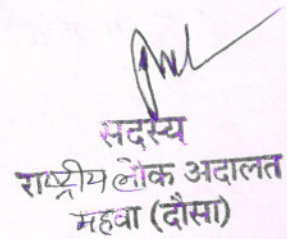 सदस्य
राष्ट्रीय लोक अदालत
महवा (दौसा)